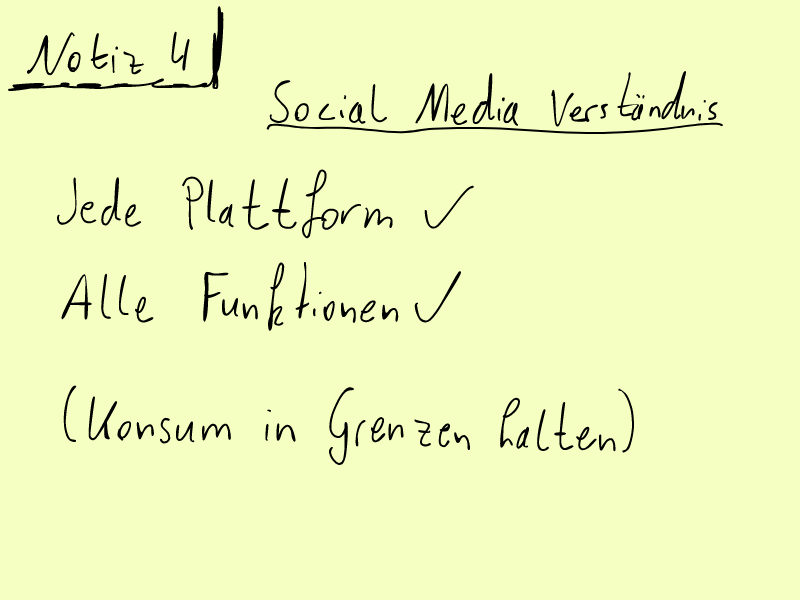 Notiz 4
Social Media Verständnis
Jede Plattform ✓
Alle Funktionen ✓
(Konsum in Grenzen halten)